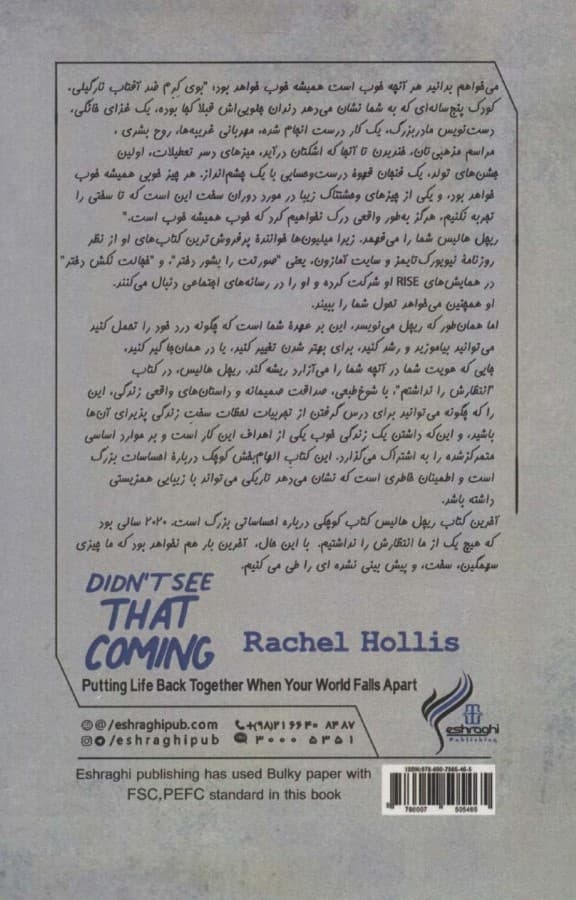 می‌خواهم بدانید هر آنچه خوب است همیشه خوب خواهد بود: "بوی کرِم ضد آفتاب نارگیلی،
کودک پنج‌ساله‌ای که به شما نشان می‌دهد دندان جلویی‌اش قبلا کجا بوده، یک غذای خانگی،
دست‌نویس مادربزرگ، یک کار درست انجام شده، مهربانی غریبه‌ها، روح بشری،
مراسم مذهبی‌تان، خندیدن تا آنجا که اشکتان درآید، میزهای دسر تعطیلات، اولین
جشن‌های تولد، یک فنجان قهوهٔ درست‌وحسابی با یک چشم‌انداز. هر چیز خوبی همیشه خوب
خواهد بود، و یکی از چیزهای وحشتناک زیبا در مورد دوران سخت این است که تا سختی را
تجربه نکنیم، هرگز به‌طور واقعی درک نخواهیم کرد که خوب همیشه خوب است."
ریچل هالیس شما را می‌فهمد. زیرا میلیون‌ها خوانندهٔ پرفروش‌ترین کتاب‌های او از نظر
روزنامهٔ نیویورک‌تایمز و سایت آمازون، یعنی "صورتت را بشور دختر"، و "خجالت نکش دختر"
در همایش‌های RISE او شرکت کرده و او را در رسانه‌های اجتماعی دنبال می‌کنند.
او همچنین می‌خواهد تحول شما را ببیند.
اما همان‌طور که ریچل می‌نویسد، این بر عهدهٔ شما است که چگونه درد خود را تحمل کنید
می‌توانید بیاموزید و رشد کنید، برای بهتر شدن تغییر کنید، یا در همان‌جا گیر کنید،
جایی که هویت شما در آنچه شما را می‌آزارد ریشه کند. ریچل هالیس، در کتاب
"انتظارش را نداشتم"، با شوخ‌طبعی، صداقت صمیمانه و داستان‌های واقعی زندگی، این
را که چگونه می‌توانید برای درس گرفتن از تجربیات لحظات سختِ زندگی پذیرای آن‌ها
باشید، و این‌که داشتن یک زندگی خوب یکی از اهداف این کار است و بر موارد اساسی
متمرکزشده را به اشتراک می‌گزارد. این کتاب الهام‌بخش کوچک دربارهٔ احساسات بزرگ
است و اطمینان خاطری است که نشان می‌دهد تاریکی می‌تواند با زیبایی همزیستی
داشته باشد.
آخرین کتاب ریچل هالیس کتاب کوچکی درباره احساساتی بزرگ است. ۲۰۲۰ سالی بود
که هیچ یک از ما انتظارش را نداشتیم. با این حال، آخرین بار هم نخواهد بود که ما چیزی
سهمگین، سخت، و پیش بینی نشده ای را طی می کنیم.
DIDN'T SEE
THAT
COMING
Rachel Hollis
Putting Life Back Together When Your World Falls Apart
@/eshraghipub.com
+(98)216640 8487
/eshraghipub
30005351
eshraghi
Publishing
Eshraghi publishing has used Bulky paper with
FSC,PEFC standard in this book